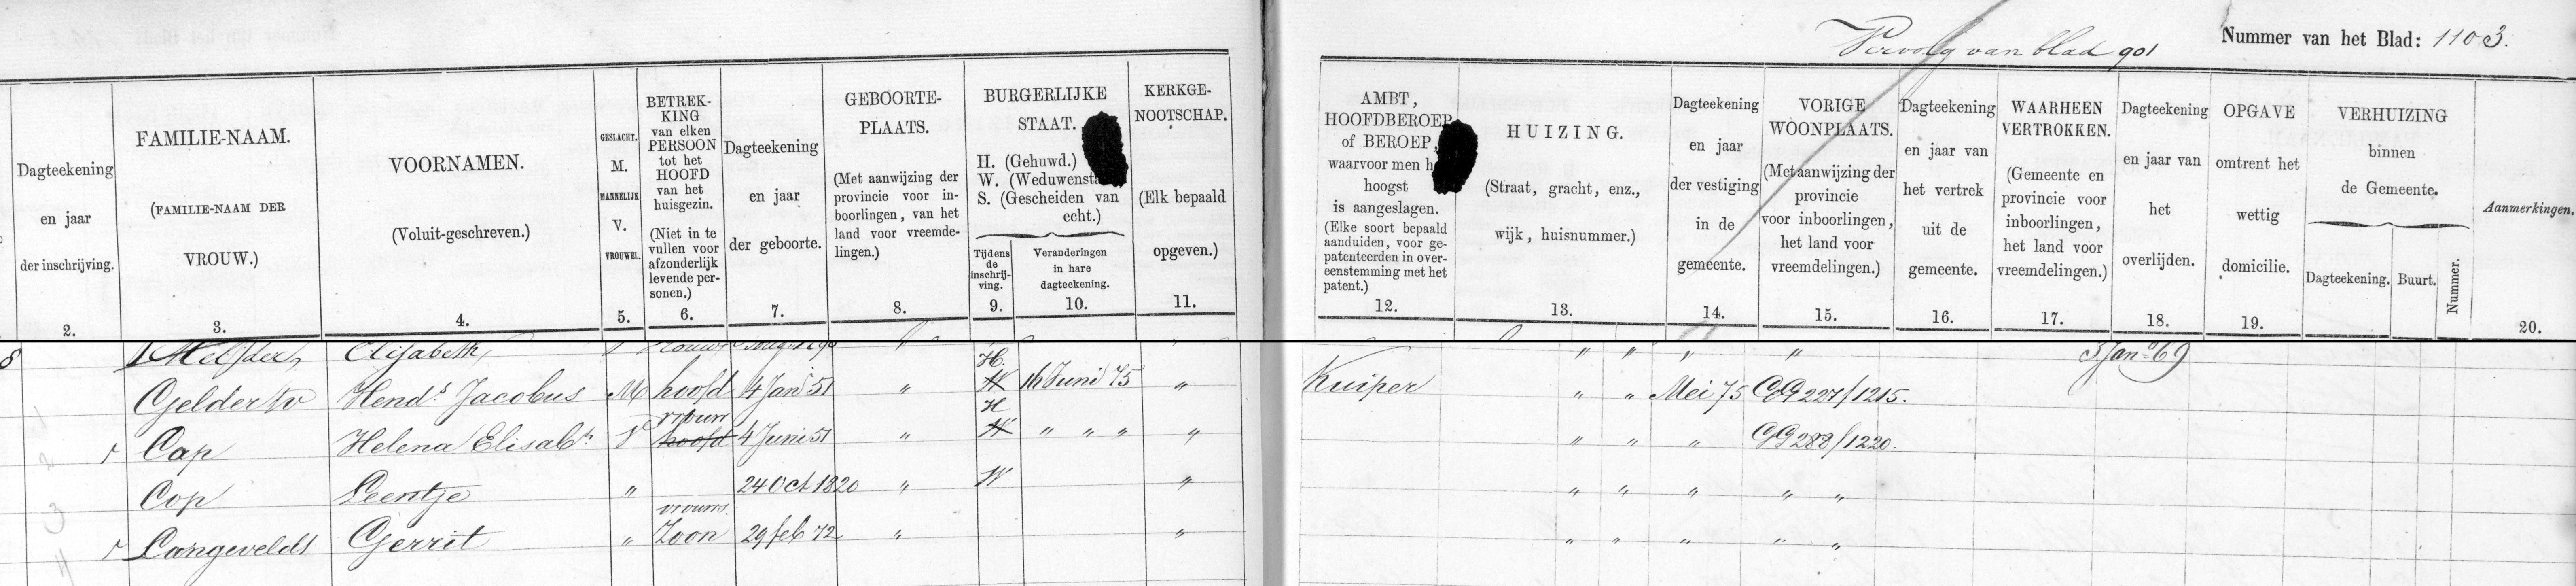 Vervolg van blad 901
Nummer van het Blad: 1103.
Dagteekening
en jaar
der inschrijving.
2.
FAMILIE-NAAM.
(FAMILIE-NAAM DER
VROUW.)
3.
VOORNAMEN.
(Voluit-geschreven.)
4.
GESLACHT.
M.
MANNELIJK
V.
VROUWEL.
5.
BETREK-
KING
van elken
PERSOON
tot het
HOOFD
van het
huisgezin.
(Niet in te
vullen voor
afzonderlijk
levende per-
sonen.)
6.
Dagteekening
en jaar
der geboorte.
7.
GEBOORTE-
PLAATS.
(Met aanwijzing der
provincie voor in-
boorlingen, van het
land voor vreemde-
lingen.)
8.
BURGERLIJKE
STAAT.
H. (Gehuwd.)
W. (Weduwenst
S. (Gescheiden van
echt.)
Tijdens
de
inschrij-
ving.
9.
Veranderingen
in hare
dagteekening.
10.
KERKGE-
NOOTSCHAP.
(Elk bepaald
opgeven.)
11.
AMBT,
HOOFDBEROEP
of BEROEP,
waarvoor men h
hoogst
is aangeslagen.
(Elke soort bepaald
aanduiden, voor ge-
patenteerden in over-
eenstemming met het
patent.)
12.
HUIZING.
(Straat, gracht, enz.,
wijk, huisnummer.)
13.
Dagteekening
en jaar
der vestiging
in de
gemeente.
14.
VORIGE
WOONPLAATS.
(Met aanwijzing der
provincie
voor inboorlingen,
het land voor
vreemdelingen.)
15.
Dagteekening
en jaar van
het vertrek
uit de
gemeente.
16.
WAARHEEN
VERTROKKEN.
(Gemeente en
provincie voor
inboorlingen,
het land voor
vreemdelingen.)
17.
Dagteekening
en jaar van
het
overlijden.
18.
OPGAVE
omtrent het
wettig
domicilie.
19.
VERHUIZING
binnen
de Gemeente.
Dagteekening.
Buurt.
Nummer.
Aanmerkingen.
20.
8 Elisabeth V vrouw " " " " " 3 Jan 69
H
Gelder v Hends Jacobus M hoofd 4 Jan 51 " W 16 Juni 75 " Kuiper " " Mei 75 GG 227/1215.
vrouw H
2 Cap Helena Elisabth V hoofd 4 Juni 51 " W " " " " " " " GG 288/1220.
3 Cop Leentje " 24 Oct 1820 " W " " " " " "
vrouws
4 Langeveldt Gerrit " Zoon 29 feb 72 " " " " " " "